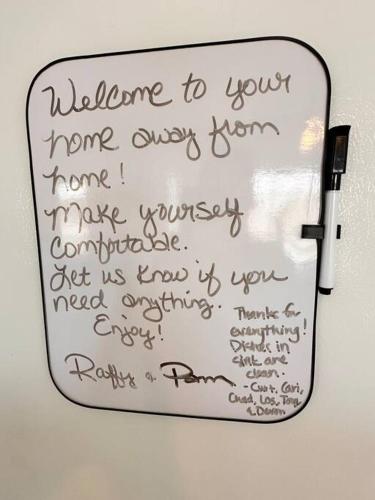 Welcome to your
home away from
home!
Make yourself
comfortable.
Let us know if you
need anything.
Enjoy!
Raffy & Pam
Thanks for
everything!
Dishes in
sink are
clean.
- Curt, Cari,
Chad, Los, Tony
& Devon